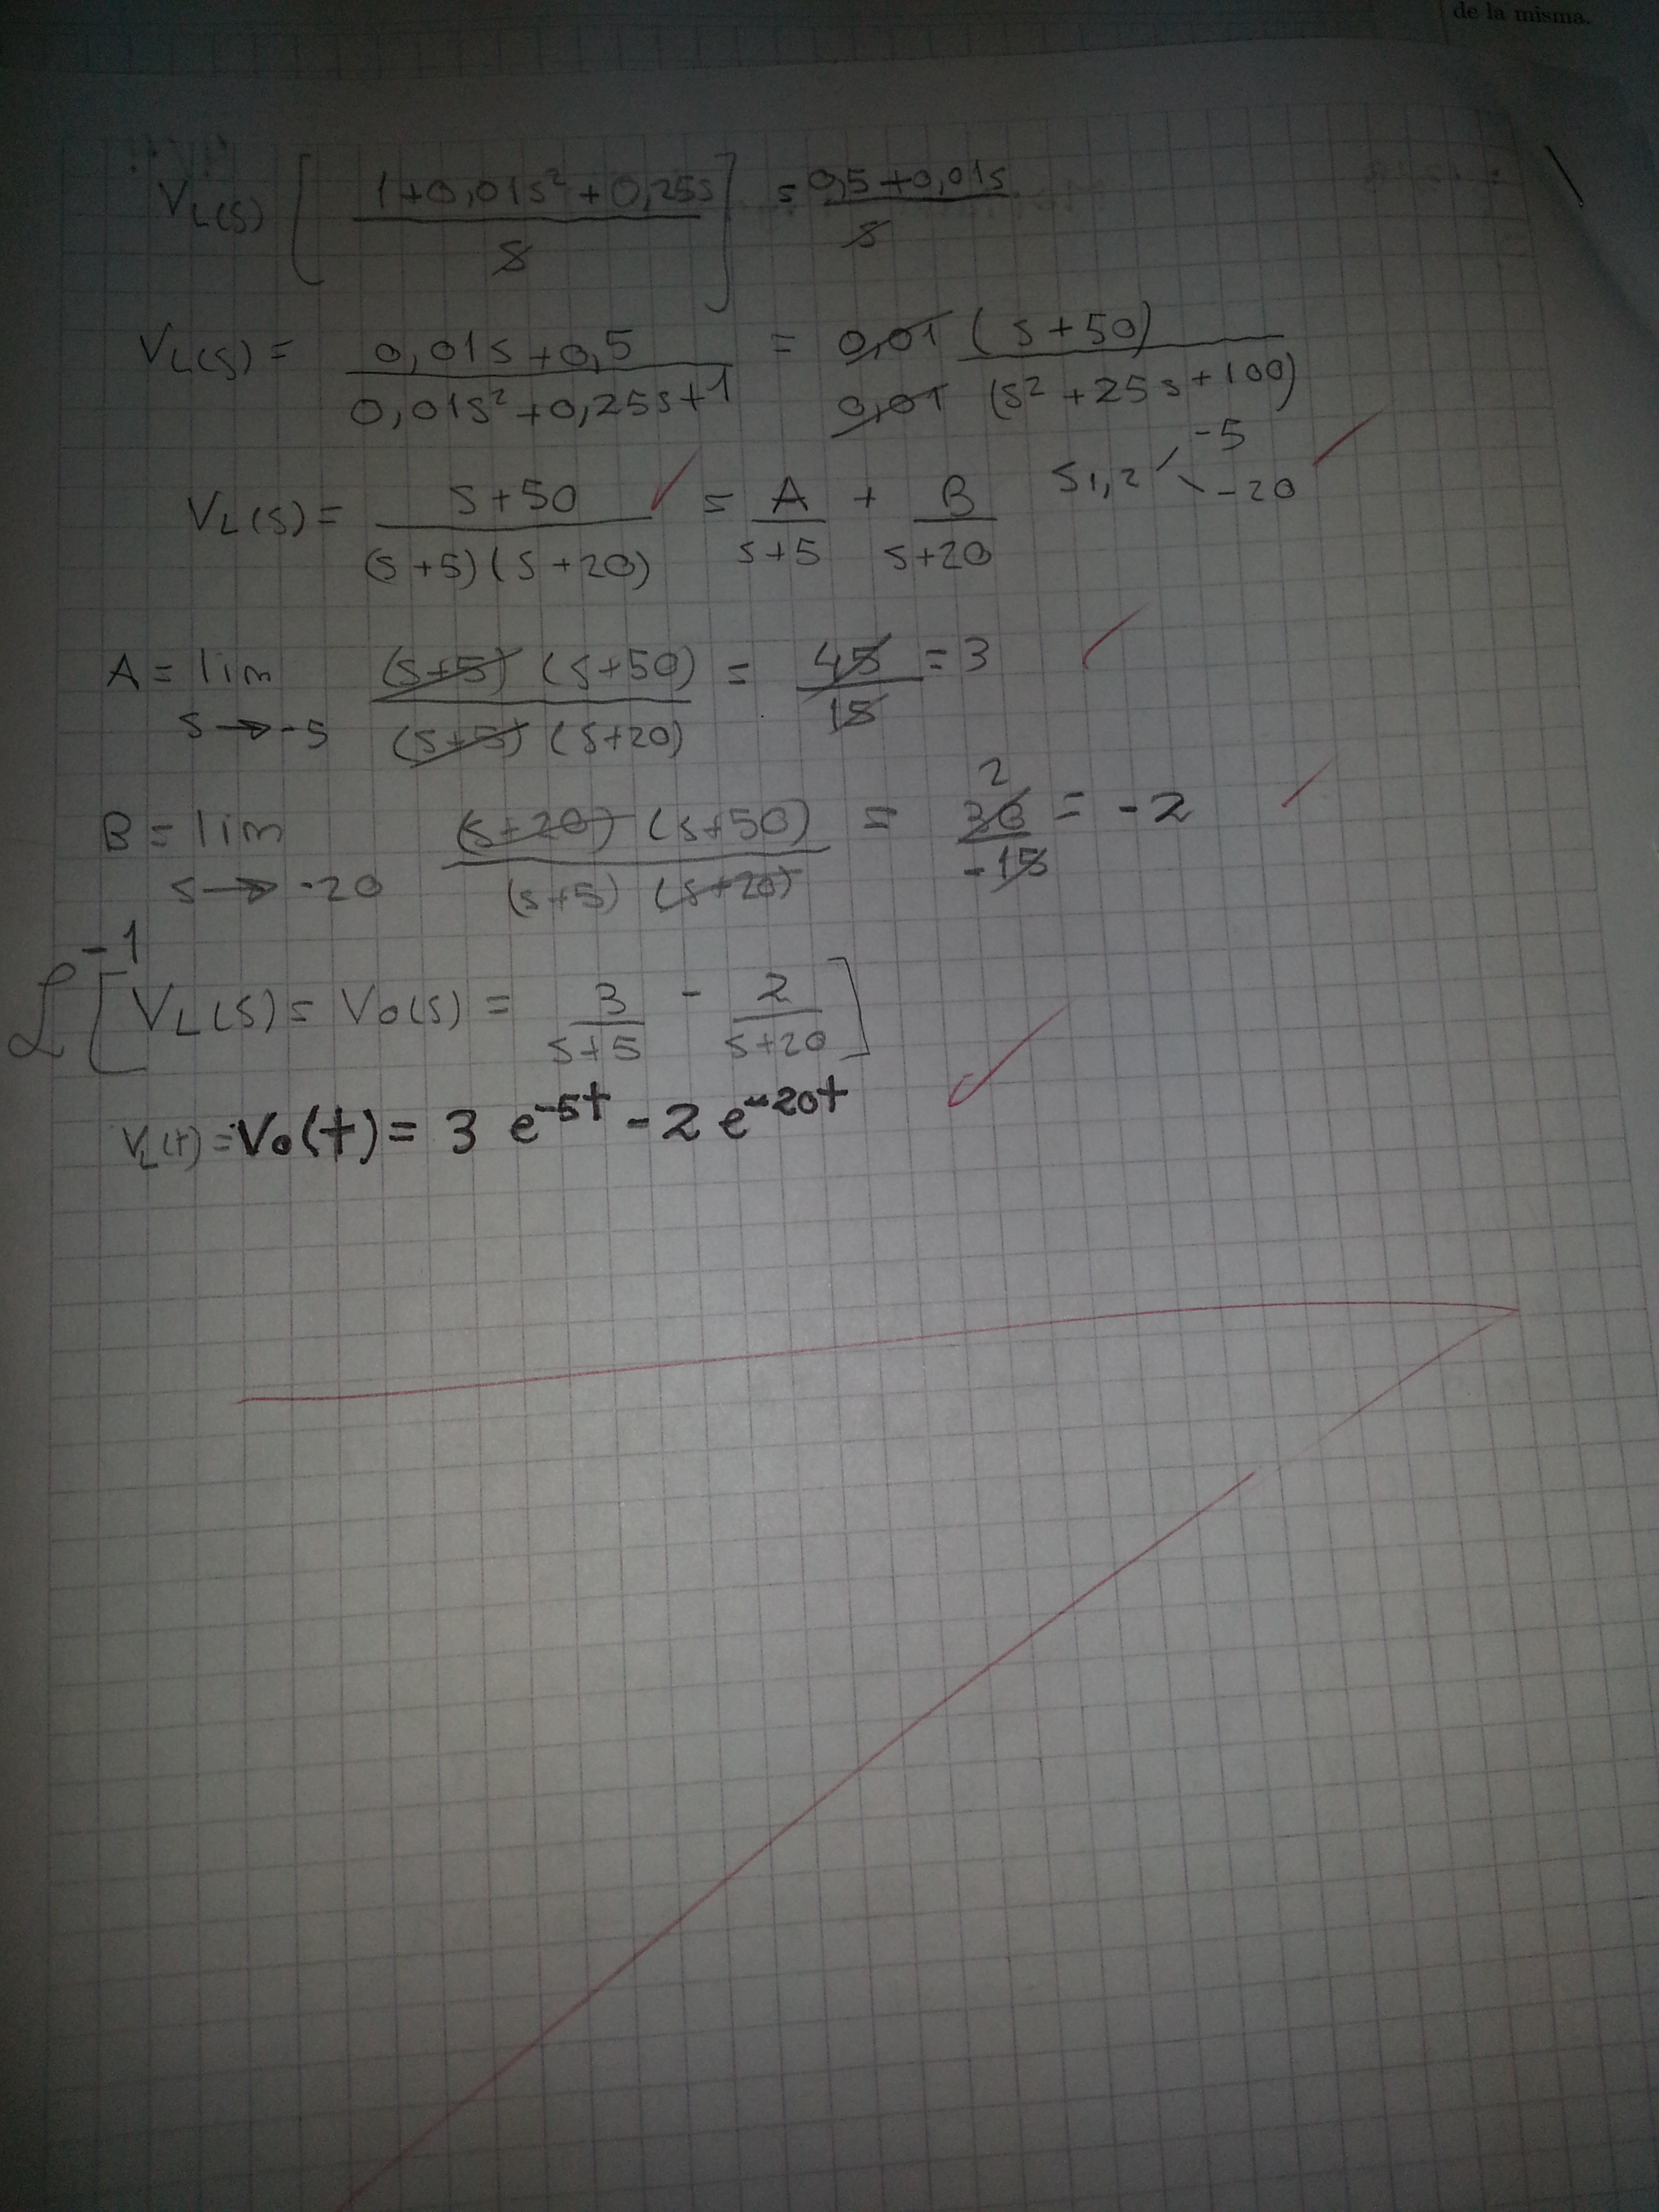 de la misma.
VL(s) [ (1+0,01s² + 0,25s) / s ] = (0,5+0,01s) / s
VL(s) = (0,01s+0,5) / (0,01s²+0,25s+1) = 0,01 (s+50) / 0,01 (s²+25s+100)
VL(s) = (s+50) / (s+5)(s+20) = A / (s+5) + B / (s+20) s1,2 -5 -20
A = lim s→-5 (s+5) (s+50) / (s+5) (s+20) = 45 / 15 = 3
B = lim s→-20 (s+20) (s+50) / (s+5) (s+20) = 30 / -15 2 = -2
ℒ⁻¹ [ VL(s) = Vo(s) = 3 / (s+5) - 2 / (s+20) ]
VL(t) = Vo(t) = 3 e^-5t - 2 e^-20t